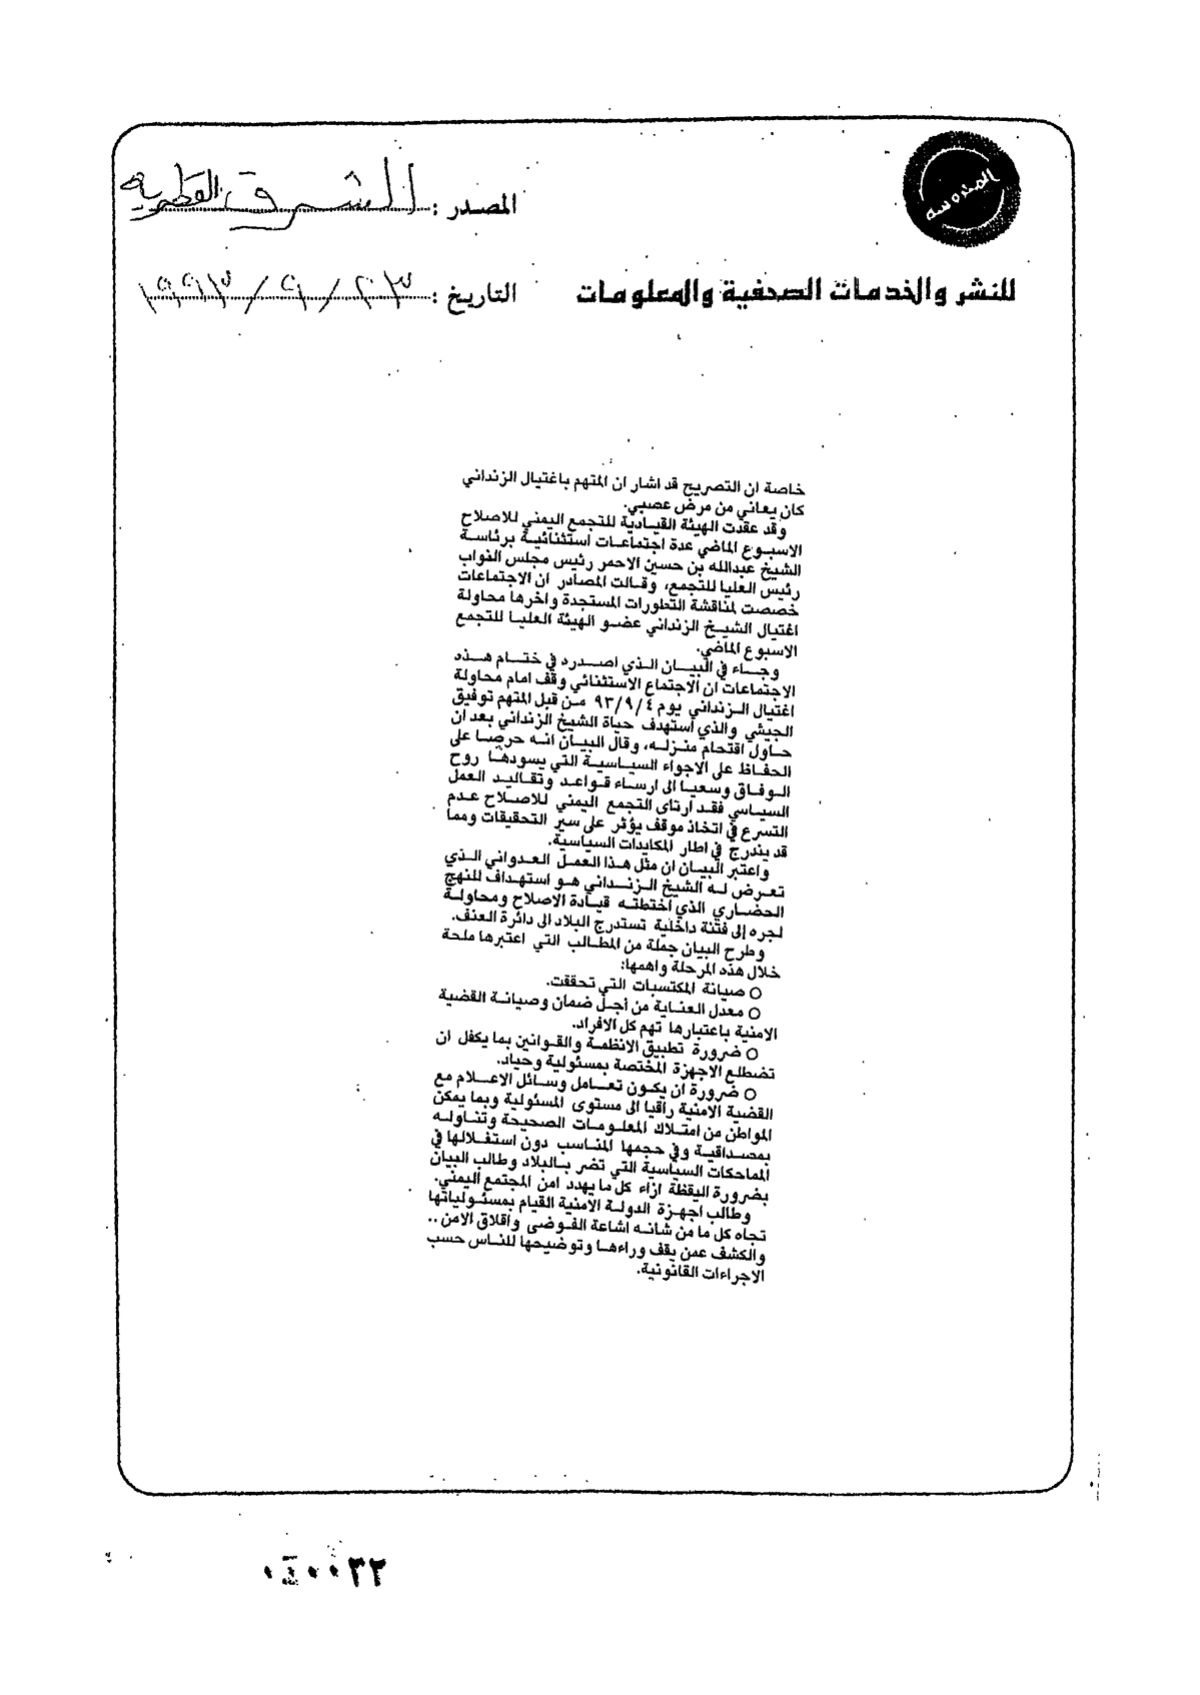 المحروسه
المصدر : الشرق القطريه
للنشر والخدمات الصحفية والمعلومات
التاريخ : ٢٣ / ٩ / ١٩٩٣
خاصة ان التصريح قد اشار ان المتهم باغتيال الزنداني
كان يعاني من مرض عصبي.
وقد عقدت الهيئة القيادية للتجمع اليمني للاصلاح
الاسبوع الماضي عدة اجتماعات استثنائية برئاسة
الشيخ عبدالله بن حسين الاحمر رئيس مجلس النواب
رئيس العليا للتجمع، وقالت المصادر ان الاجتماعات
خصصت لمناقشة التطورات المستجدة واخرها محاولة
اغتيال الشيخ الزنداني عضو الهيئة العليا للتجمع
الاسبوع الماضي.
وجاء في البيان الذي اصدره في ختام هذه
الاجتماعات ان الاجتماع الاستثنائي وقف امام محاولة
اغتيال الزنداني يوم ٩٣/٩/٤ من قبل المتهم توفيق
الجيشي والذي استهدف حياة الشيخ الزنداني بعد ان
حاول اقتحام منزله، وقال البيان انه حرصا على
الحفاظ على الاجواء السياسية التي يسودها روح
الوفاق وسعيا الى ارساء قواعد وتقاليد العمل
السياسي فقد ارتاى التجمع اليمني للاصلاح عدم
التسرع في اتخاذ موقف يؤثر على سير التحقيقات ومما
قد يندرج في اطار المكايدات السياسية.
واعتبر البيان ان مثل هذا العمل العدواني الذي
تعرض له الشيخ الزنداني هو استهداف للنهج
الحضاري الذي اختطته قيادة الاصلاح ومحاولة
لجره إلى فتنة داخلية تستدرج البلاد الى دائرة العنف.
وطرح البيان جملة من المطالب التي اعتبرها ملحة
خلال هذه المرحلة واهمها:
○ صيانة المكتسبات التي تحققت.
○ معدل العناية من أجل ضمان وصيانة القضية
الامنية باعتبارها تهم كل الافراد.
○ ضرورة تطبيق الانظمة والقوانين بما يكفل ان
تضطلع الاجهزة المختصة بمسئولية وحياد.
○ ضرورة ان يكون تعامل وسائل الاعلام مع
القضية الامنية راقيا الى مستوى المسئولية وبما يمكن
المواطن من امتلاك المعلومات الصحيحة وتناوله
بمصداقية وفي حجمها المناسب دون استغلالها في
المماحكات السياسية التي تضر بالبلاد وطالب البيان
بضرورة اليقظة ازاء كل ما يهدد امن المجتمع اليمني.
وطالب اجهزة الدولة الامنية القيام بمسئولياتها
تجاه كل ما من شانه اشاعة الفوضى واقلاق الامن ..
والكشف عمن يقف وراءها وتوضيحها للناس حسب
الاجراءات القانونية.